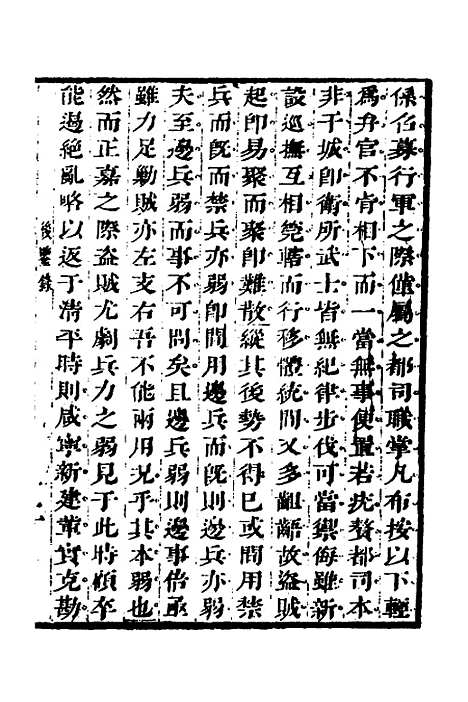 係召募行軍之際僅屬之都司職掌凡布按以下輕
爲弁官不肯相下而一當無事便置若疣贅都司本
非干城卽衛所武士皆無紀律步伐可當禦侮雖新
設巡撫互相筦轄而行移體統間又多齟齬故盜賊
起卽易聚而聚卽難散縱其後勢不得已或間用禁
兵而旣而禁兵亦弱卽間用邊兵而旣則邊兵亦弱
夫至邊兵弱而事不可問矣且邊兵弱則邊事倍亟
雖力足勦賊亦左支右吾不能兩用况乎其本弱也
然而正嘉之際盜賊尤劇兵力之弱見于此時顧卒
能遏絕亂略以返于淸平時則咸寧新建輩實克勘
後鑒錄